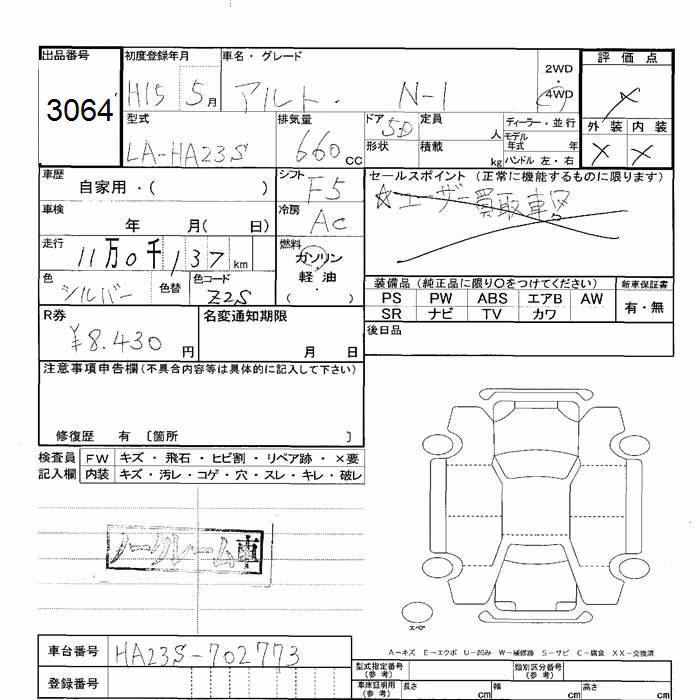 出品番号 初度登録年月 車名・グレード 評価点
3064 H15 5月 アルト・ N-1 2WD・4WD
型式 排気量 ドア 定員 ディーラー・並行 外装 内装
LA-HA23S 660cc 5D 人 モデル年式 年
形状 積載 kg ハンドル 左・右
車歴 シフト セールスポイント (正常に機能するものに限ります)
自家用・( ) F5 ☆ユーザー買取車
車検 年 月( 日) 冷房 AC
走行 11万0千137km 燃料 ガソリン・軽油・( )
色 シルバー 色替 色コード Z2S
装備品 (純正品に限り○をつけてください) 新車保証書
PS PW ABS エアB AW 有・無
SR ナビ TV カワ
R券 ¥8.430円 名変通知期限 月 日 後日品
注意事項申告欄(不具合内容等は具体的に記入して下さい)
修復歴 有 〔箇所 〕
検査員 FW キズ・飛石・ヒビ割・リペア跡・×要
記入欄 内装 キズ・汚レ・コゲ・穴・スレ・キレ・破レ
ノークレーム車
スペア
A−キズ E−エクボ U−凹み W−補修跡 S−サビ C−腐食 XX−交換済
車台番号 HA23S-702773
登録番号
型式指定番号(参考) 類別区分番号(参考)
車庫証明用(参考) 長さ cm 幅 cm 高さ cm